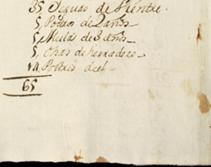 35, Yeguas de Vientre
5, Potros de 2 años
5, Mulas de 3 años
5, Otras de herradero
14, Potros de
65